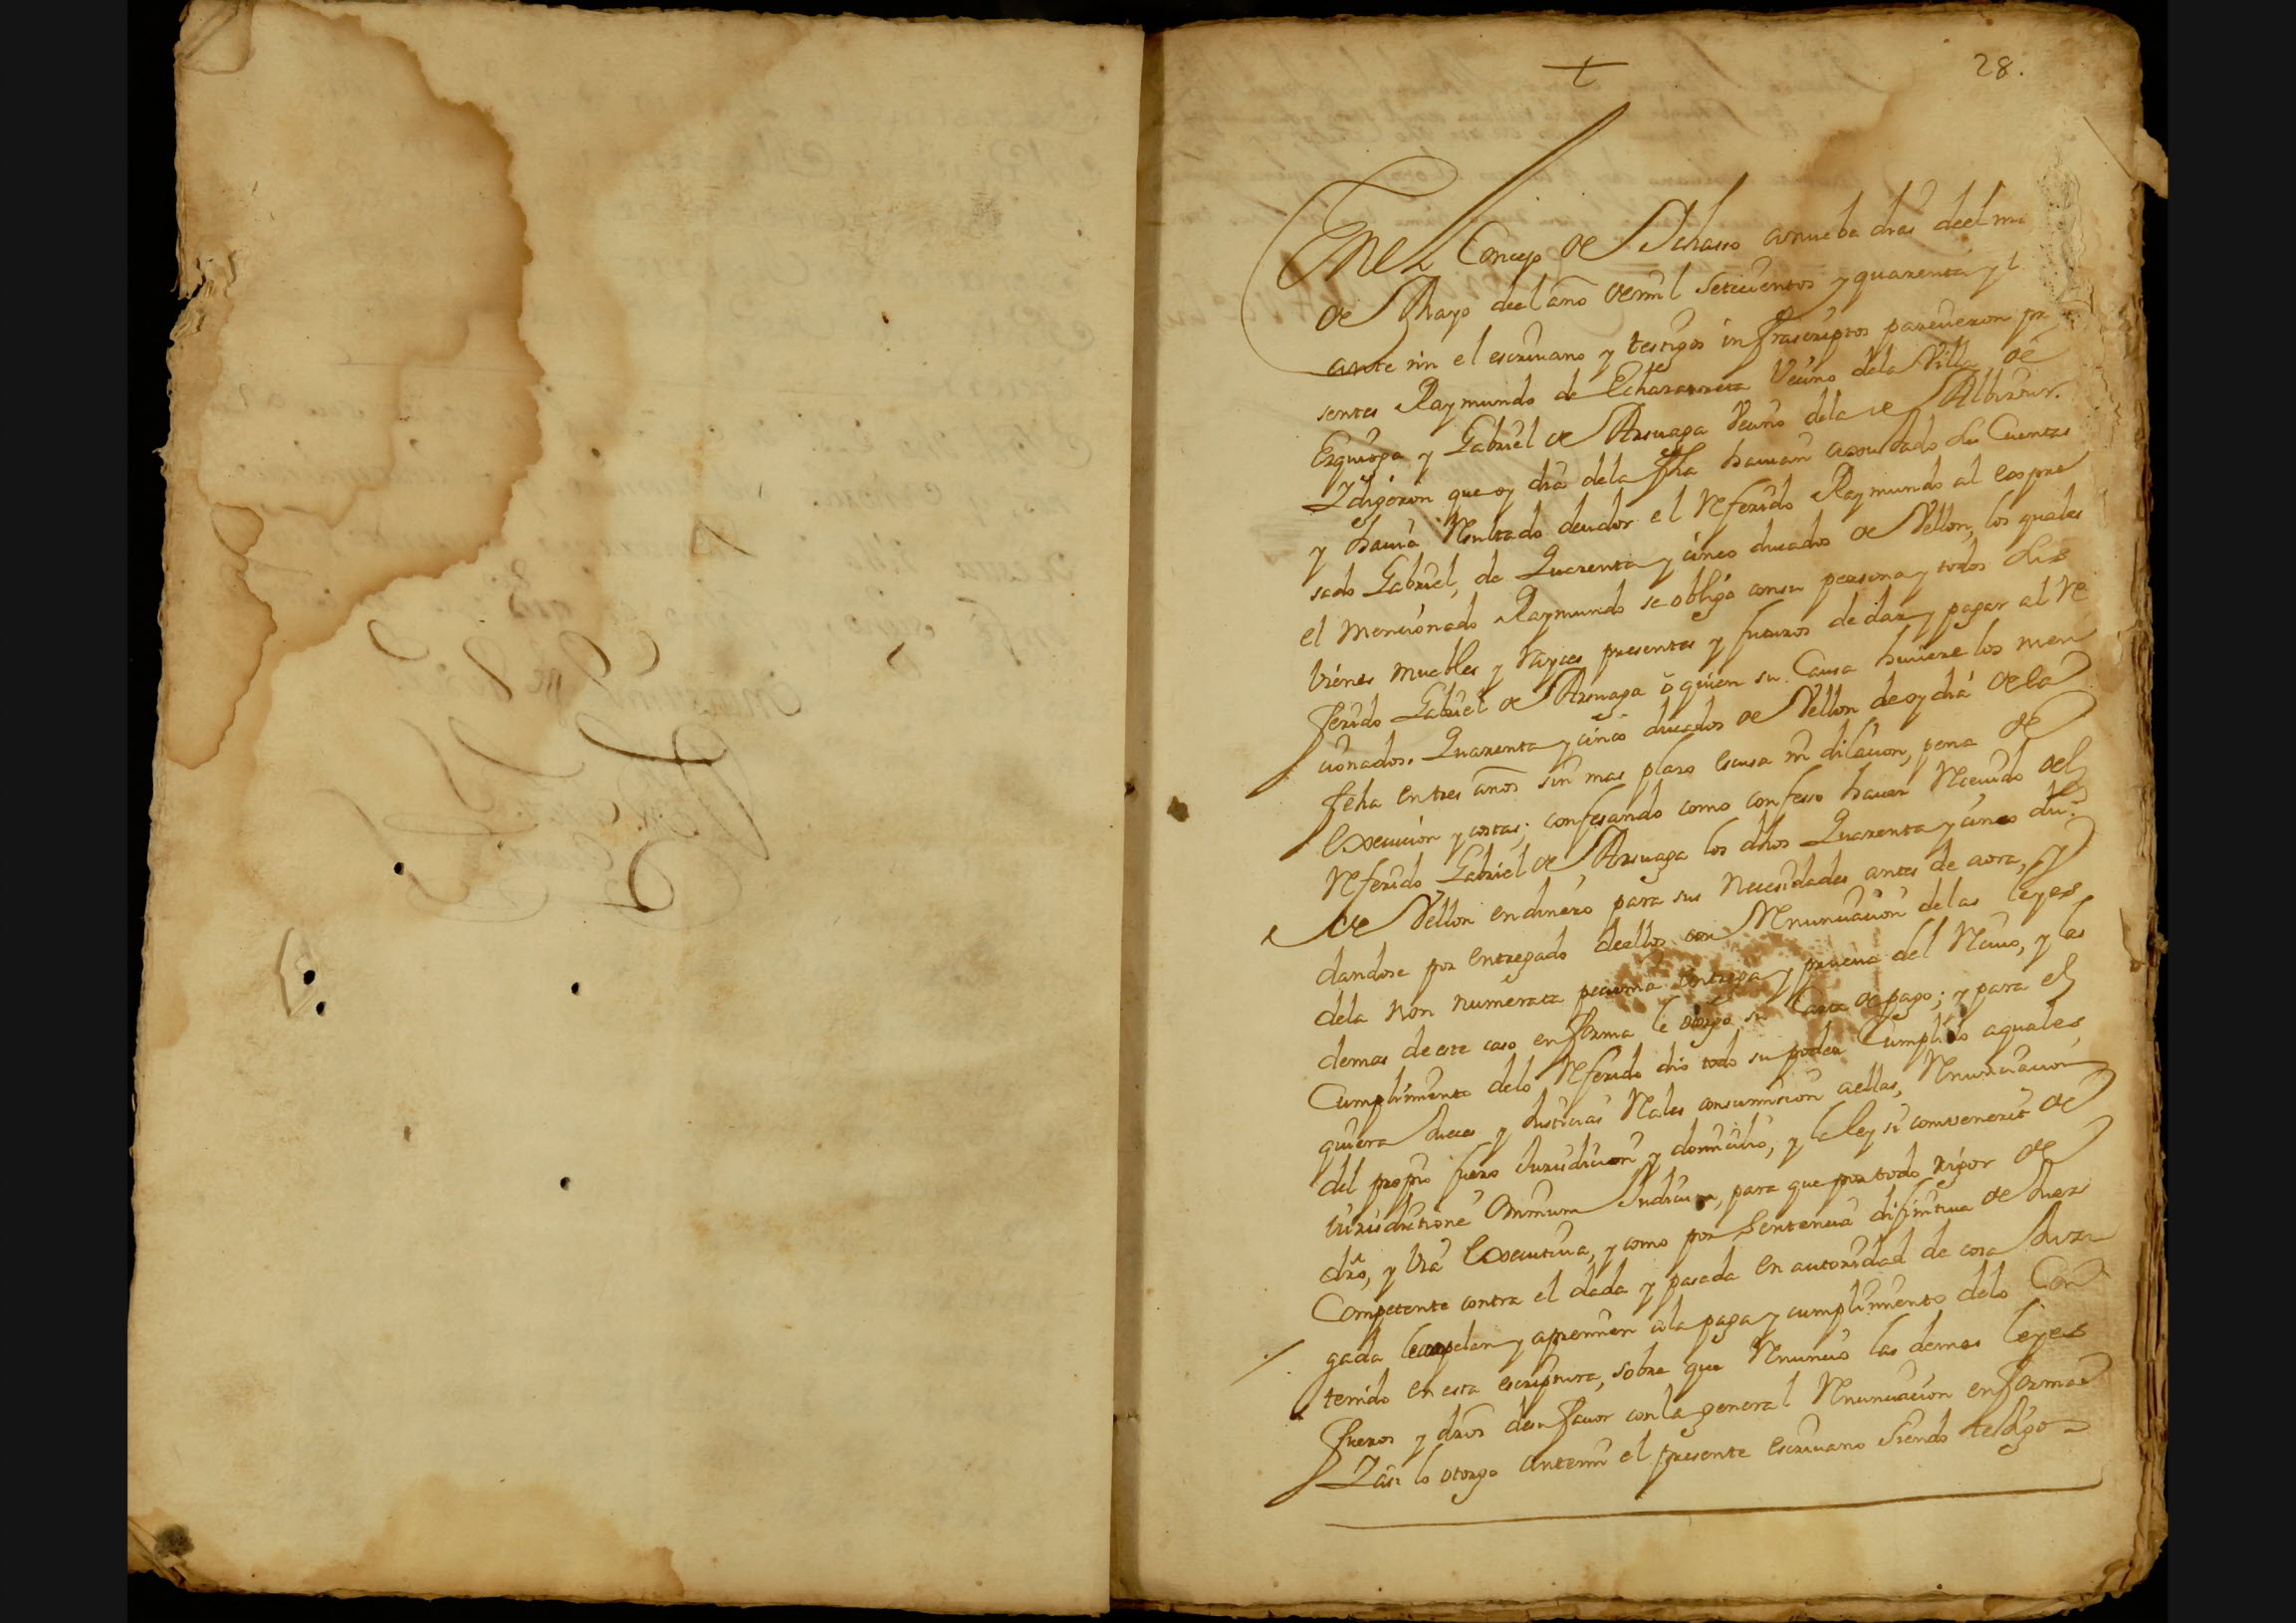 28.
En el Concejo de Ichasso a nueba dias deel m
de Mayo deel año de mil Setecientos y quarenta y
ante mi el escriuano y testigos infrascriptos parecieron pre
sentes Raymundo de Echazarreta Vecino dela Villa de
Ezquioga y Gabriel de Arsuaga Vecino dela de Albiztur.
Y digeron que oy dia dela fha hauian ajustado sus Cuentas
y hauia Resultado deudor el Referido Raymundo al expre
sado Gabriel, de Quarenta y cinco ducados de Vellon, los quales
el mencionado Raymundo se obligó con su persona y todos sus
bienes muebles y Rayces presentes y futuros de dar y pagar al Re
ferido Gabriel de Arsuaga ó quien su Causa huuiere los men
cionados. Quarenta y cinco ducados de Vellon de oy dia de la
fcha en tres años sin mas plazo escusa ni dilacion, pena de
execucion y costas; confesando como confeso hauer Reciuido del
Referido Gabriel de Arsuaga los dhos Quarenta y cinco dus.
de Vellon en dinero para sus Necesidades antes de aora, y
dandose por entregado deellos con Renunciacion delas leyes
dela non numerata pecunia entrega y prueua del Reciuo, y las
demas de este caso en forma le otorgó su Carta de pago; y para el
Cumplimiento delo Referido dió todo su poder Cumplido a quales
quiera Jueces y Justicias Reales con sumision aellas, Renunciacion
del propio fuero Jurisdicion y domicilio, y la ley si convenerit de
Jurisdictione Omnium Judicum, para que por todo rigor de
dro, y via executiua, y como por Sentencia difinitiua de Juez
Competente contra el dada y pasada en autoridad de cosa Juz
gada le compelan y apremien ala paga y cumplimiento delo Con
tenido en esta escriptura, sobre que Renunció las demas leyes
fueros y dros de su fauor con la general Renunciacion en forma
Y asi lo otorgo ante mi el presente escriuano siendo testigos